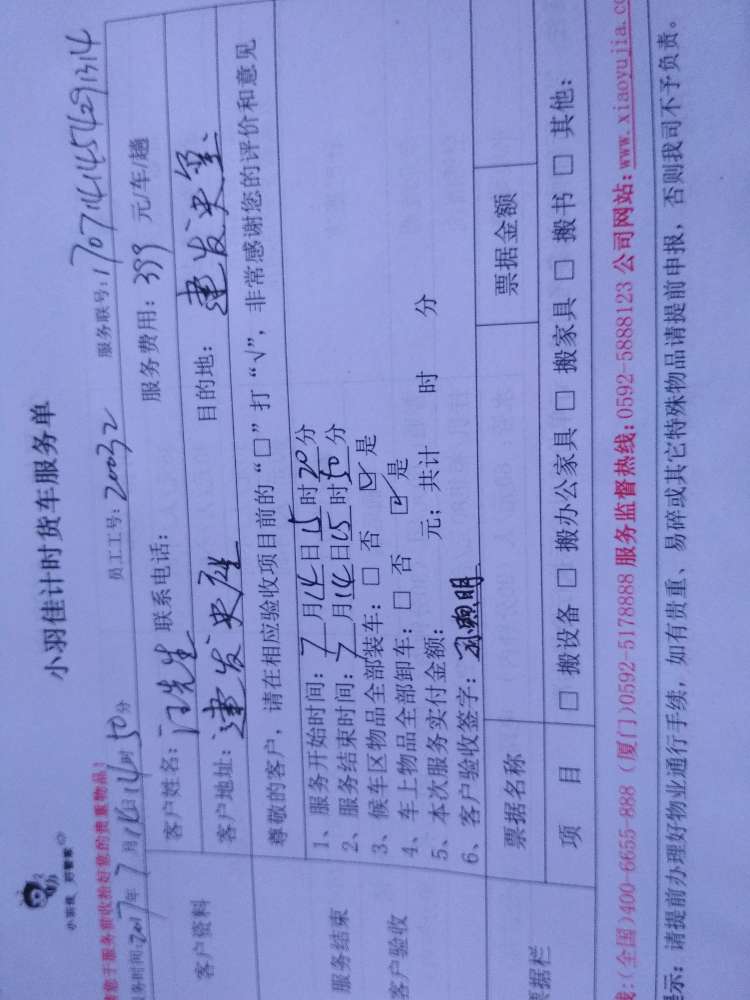 小羽佳计时货车服务单
小羽佳 好管家
意于服务前收拾好您的贵重物品]
务时间:2017年7月14日14时50分 员工工号:20032 服务联号:1707141454291314
客户资料
客户姓名:汪先生 联系电话: 服务费用:399 元/车/趟
客户地址:建发 目的地:建发
尊敬的客户,请在相应验收项目前的“□”打“√”,非常感谢您的评价和意见
服务结束
客户验收
1、服务开始时间:7月14日15时20分
2、服务结束时间:7月14日15时50分
3、候车区物品全部装车:□ 否 ☑ 是
4、车上物品全部卸车:□ 否 ☑ 是
5、本次服务实付金额: 元;共计 时 分
6、客户验收签字:
票据栏
票据名称 票据金额
项 目 □ 搬设备 □ 搬办公家具 □ 搬家具 □ 搬书 □ 其他:
线:(全国)400-6655-888 (厦门)0592-5178888 服务监督热线:0592-5888123 公司网站:www.xiaoyujia.co
示:请提前办理好物业通行手续,如有贵重、易碎或其它特殊物品请提前申报,否则我司不予负责。